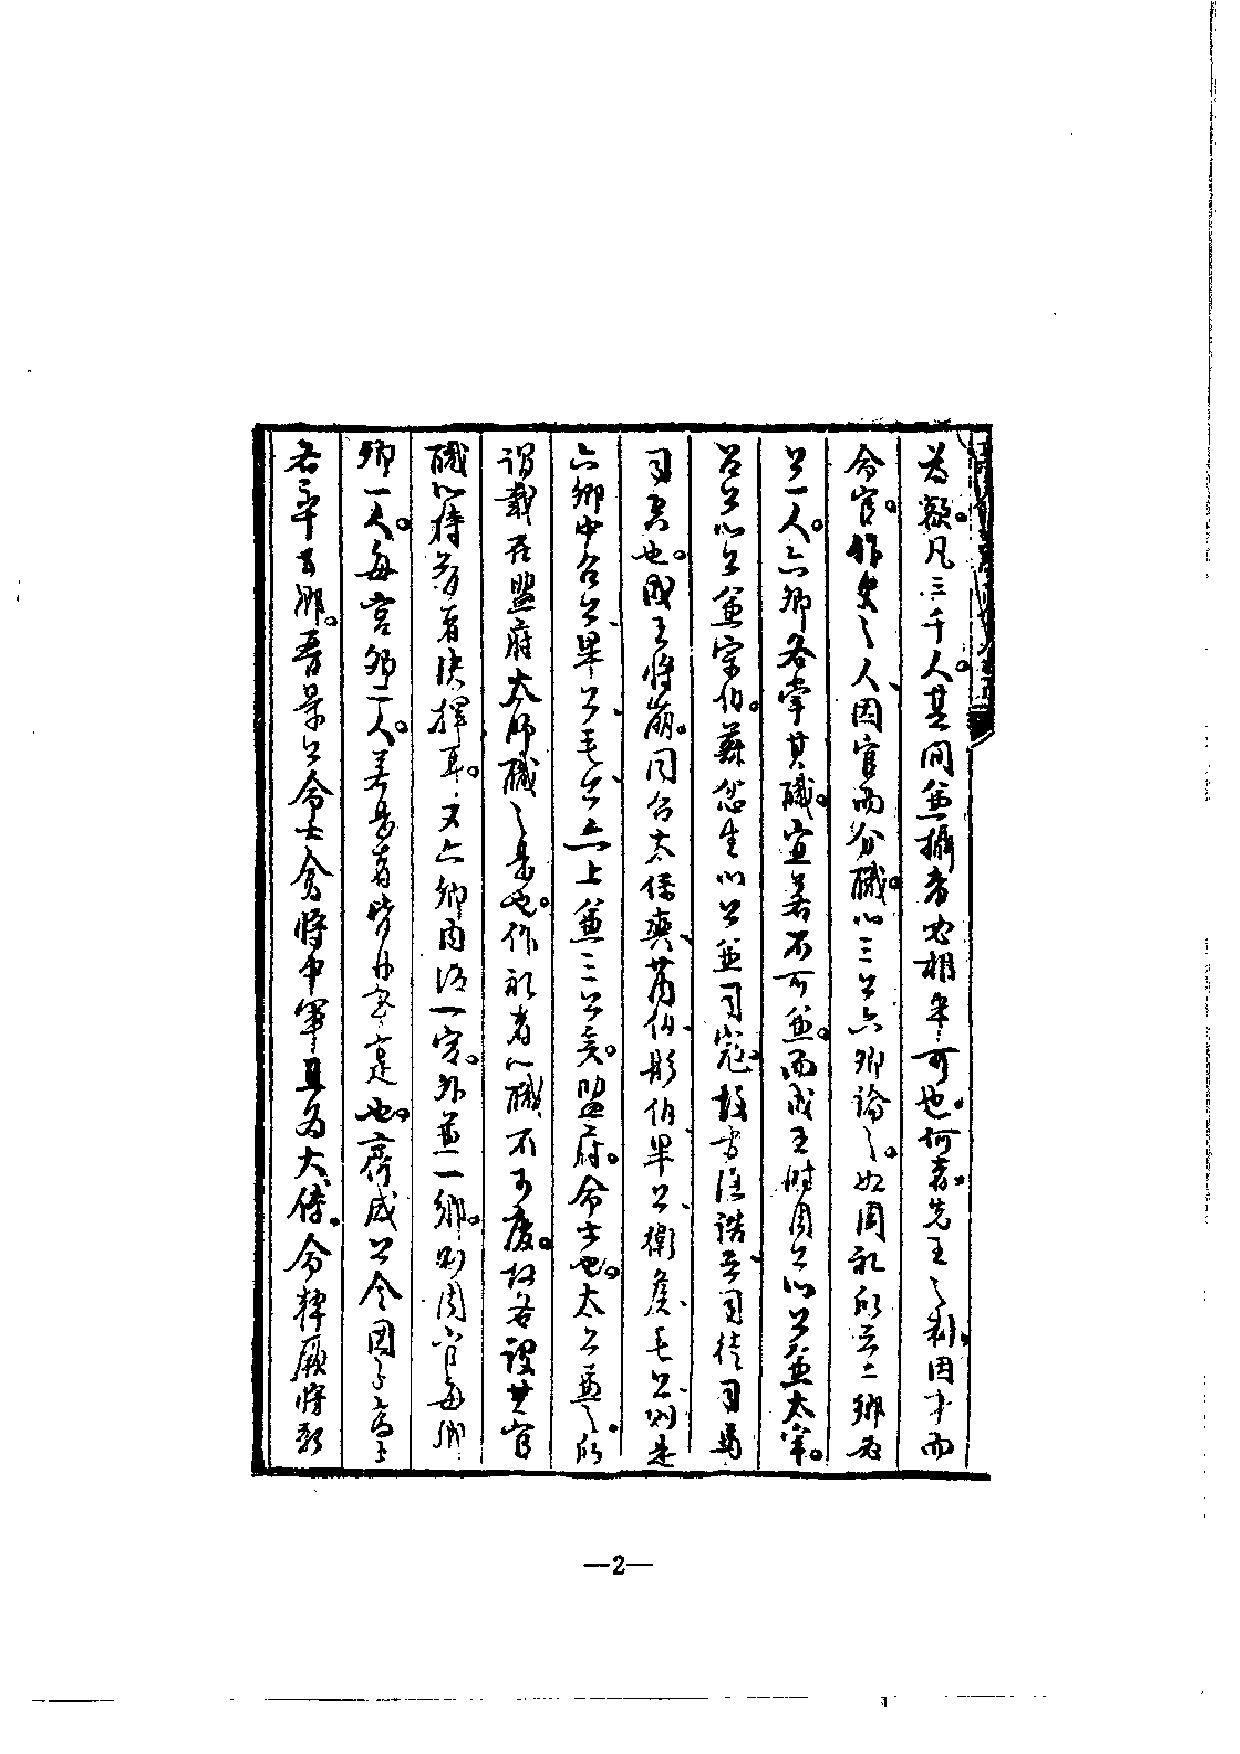 為歟。凡三千人。其間兼攝者也相半可也。何者。先王之制。因才而
命官。非史之人、因官而分職。以三公六卿論之。如周礼所云二鄉為
公一人。六卿各掌其職。宜若不可兼。而成王時周公以公兼太宰。
召公以公兼宗伯。蘇忿生以公兼司寇。故書酒誥云、司徒司馬
司空也。成王將崩。同召太保奭、芮伯、彤伯、畢公、衛侯、毛公則是
六卿中召公、畢公、毛公、亦上兼三公矣。盟府。命士也。太公兼之。所
謂載在盟府太師職之是也。作礼者以職不可廢。故各設其官
職以待有者。又六卿内治一官。外兼一鄉。則周官每鄉
卿一人。每宮卿二人。若是者皆
齊威公令國子高子
各率五鄉。晉景公命士會將中軍且為大傅。令韓厥將新